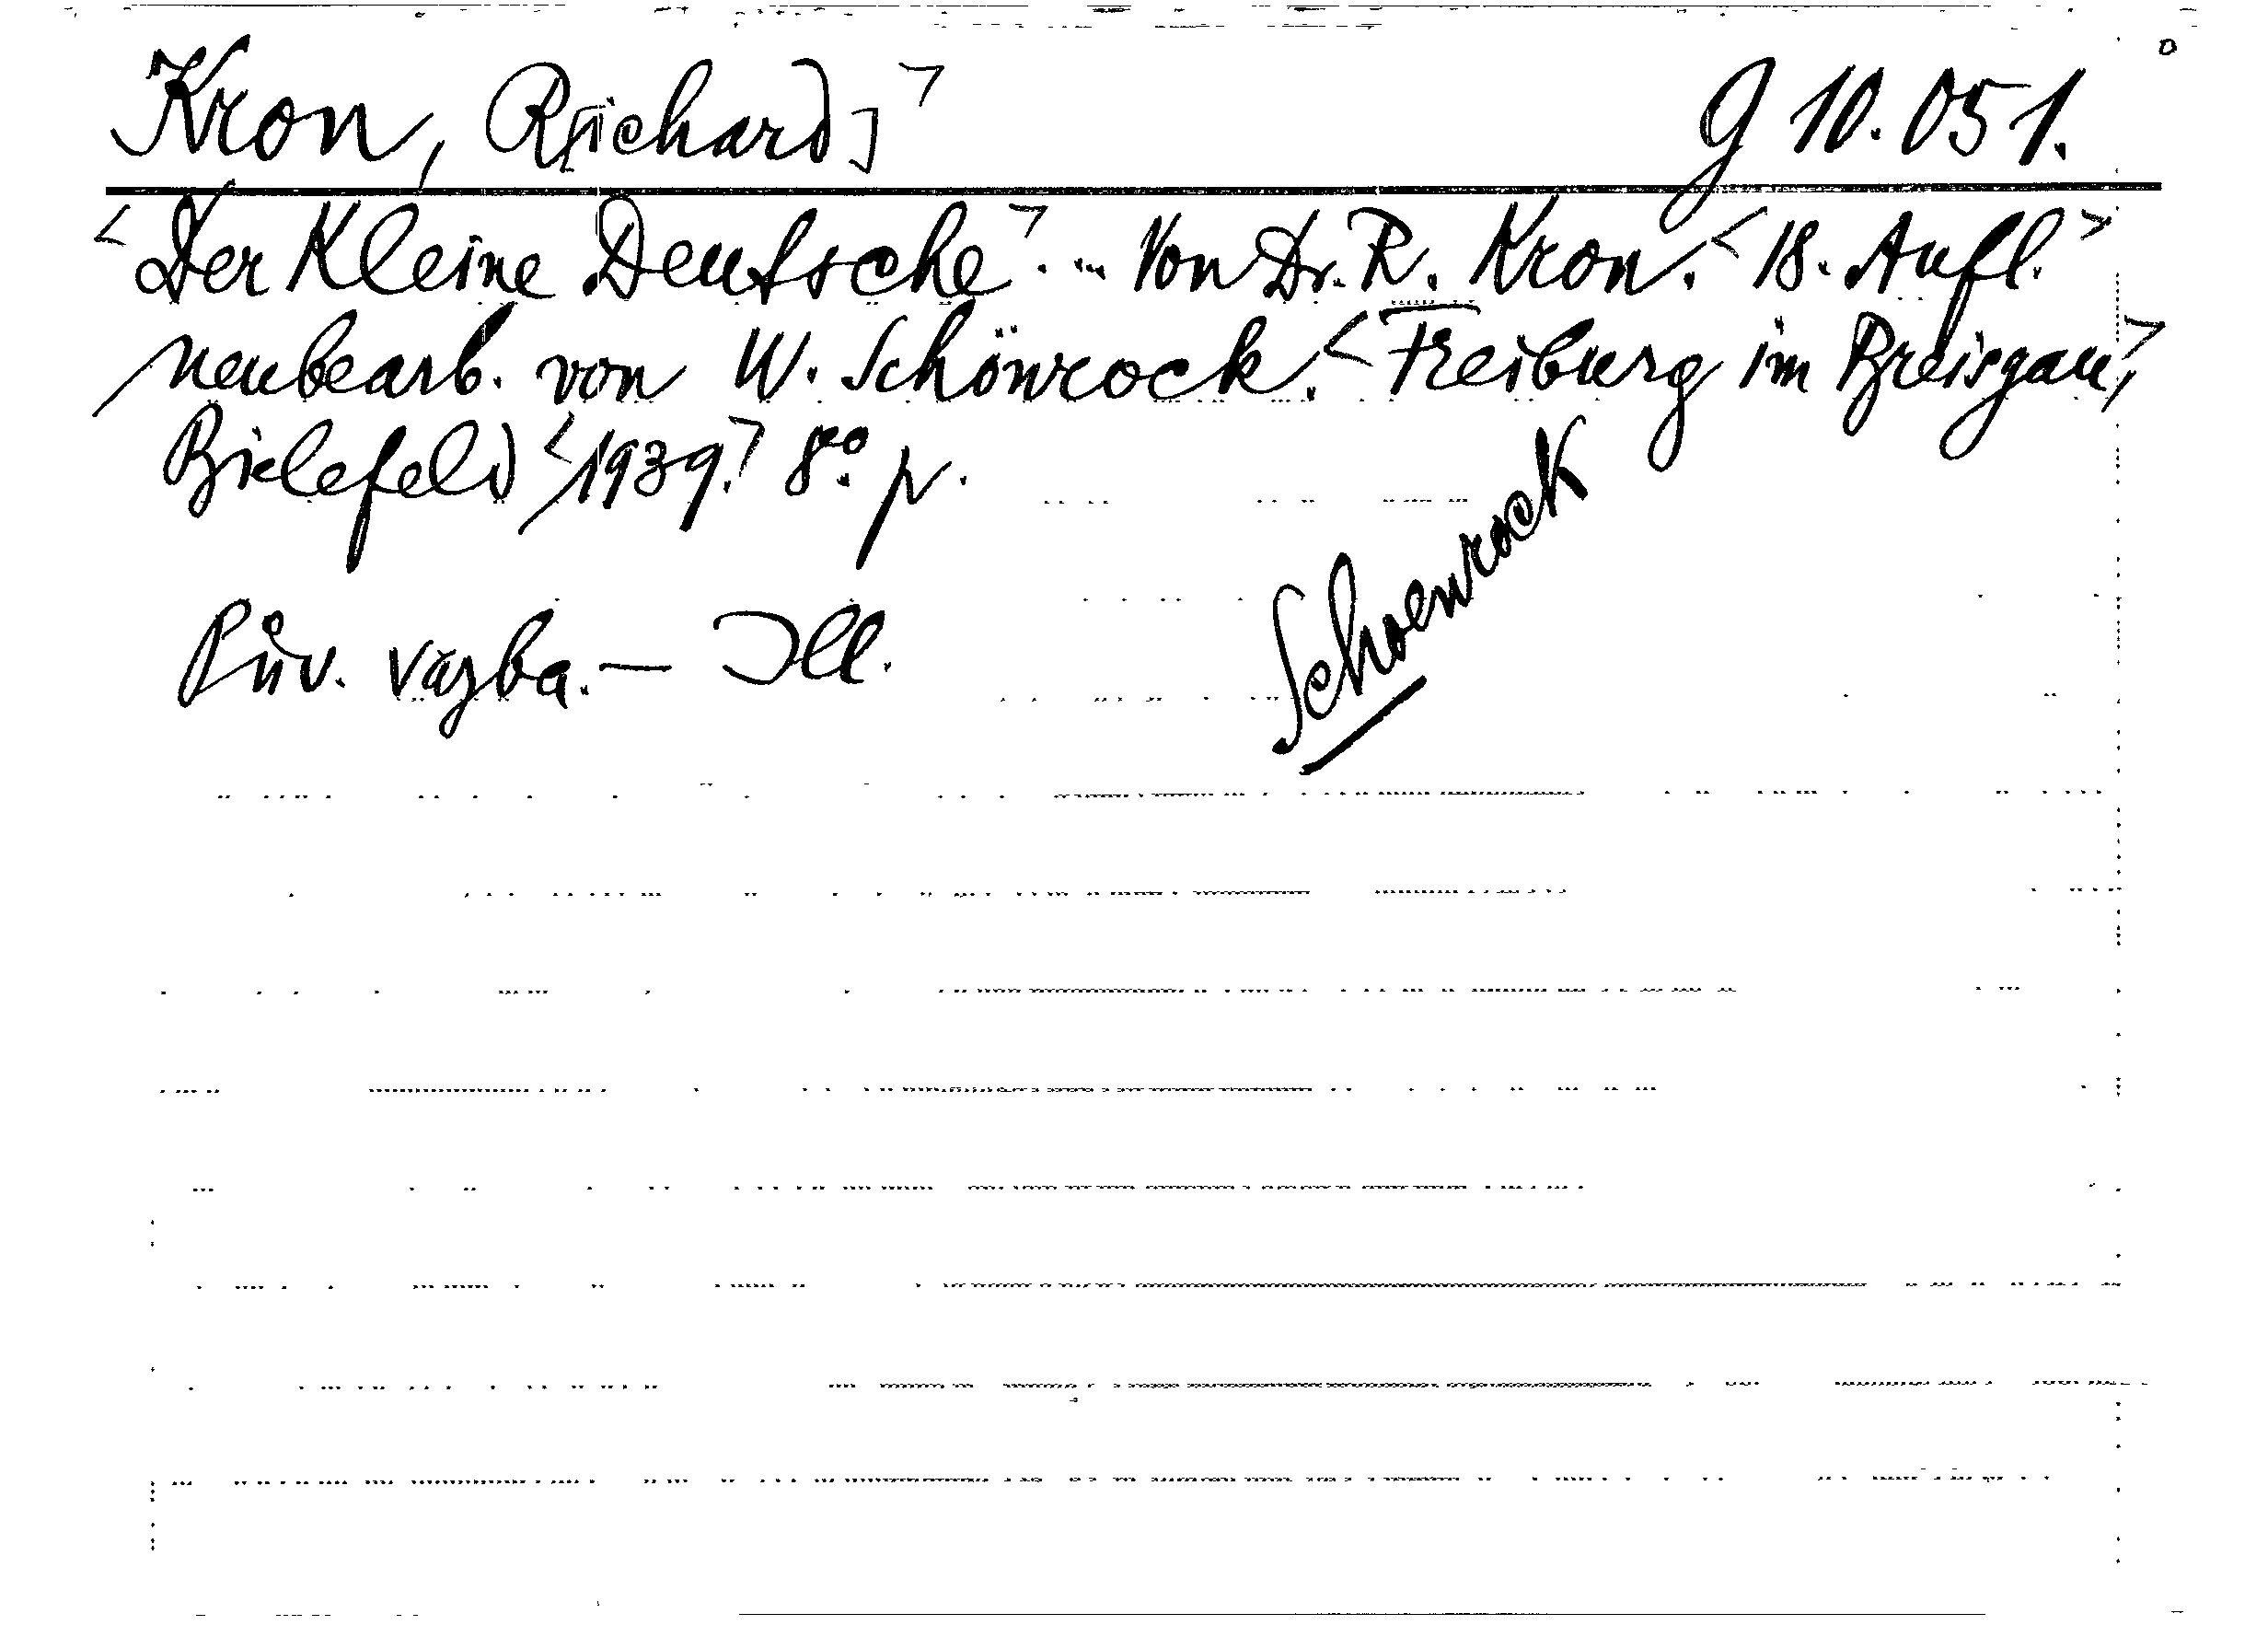 Kron, R[ichard]⌝ g 10.051.
<Der Kleine Deutsche⌝. ... Von Dr. R. Kron. <18. Aufl.>
neubearb. von W. Schönrock. <Freiburg im Breisgau,⌝
Bielefeld <1939.⌝ 8°. p.
Schoenrock
Pův. vazba. — Ill.